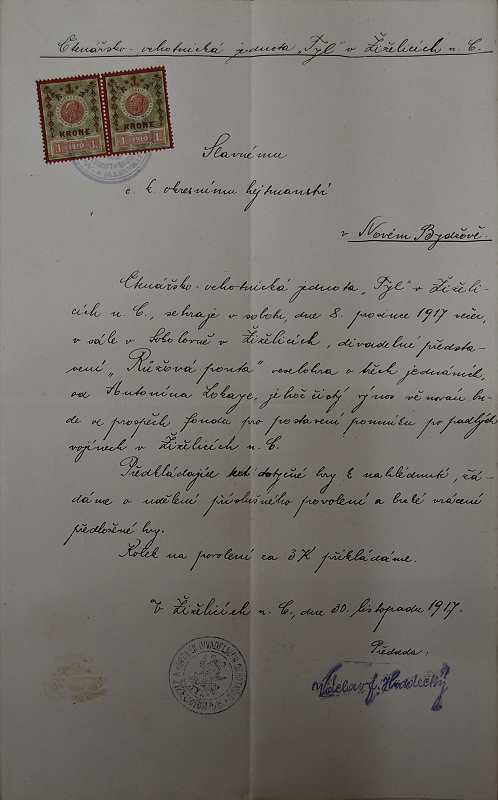 Čtenářsko-ochotnická jednota „Tyl" v Žiželicích n. C.
1 1
KRONE KRONE
1 1910 1 1 1910 1
Slavnému
c. k. okresnímu hejtmanství
v Novém Bydžově.
Čtenářsko-ochotnická jednota „Tyl" v Žiželi-
cích n. C., sehraje v sobotu, dne 8. prosince 1917 večer,
v sále v Sokolovně v Žiželicích, divadelní předsta-
vení „Růžová pouta" veselohra o třech jednáních,
od Antonína Lokaye, jehož čistý výnos věnován bu-
de ve prospěch fondu pro postavení pomníku po padlých
vojínech v Žiželicích n. C.
Předkládajíce dotyčné hry k nahlédnutí, žá-
dáme o udělení příslušného povolení a brzké vrácení
předložené hry.
Kolek na povolení ca 3K přikládáme.
V Žiželicích n. C., dne 30. listopadu 1917.
Předseda:
Václav J. Hradečký